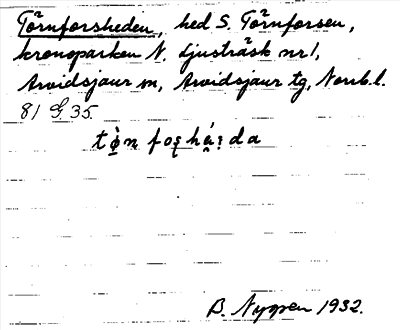 Törnforsheden, hed S. Törnforsen,
kronoparken N. Ljusträsk nr 1,
Arvidsjaur sn, Arvidsjaur tg, Norrb. l.
81 G. 35.
B. Nygren 1932.